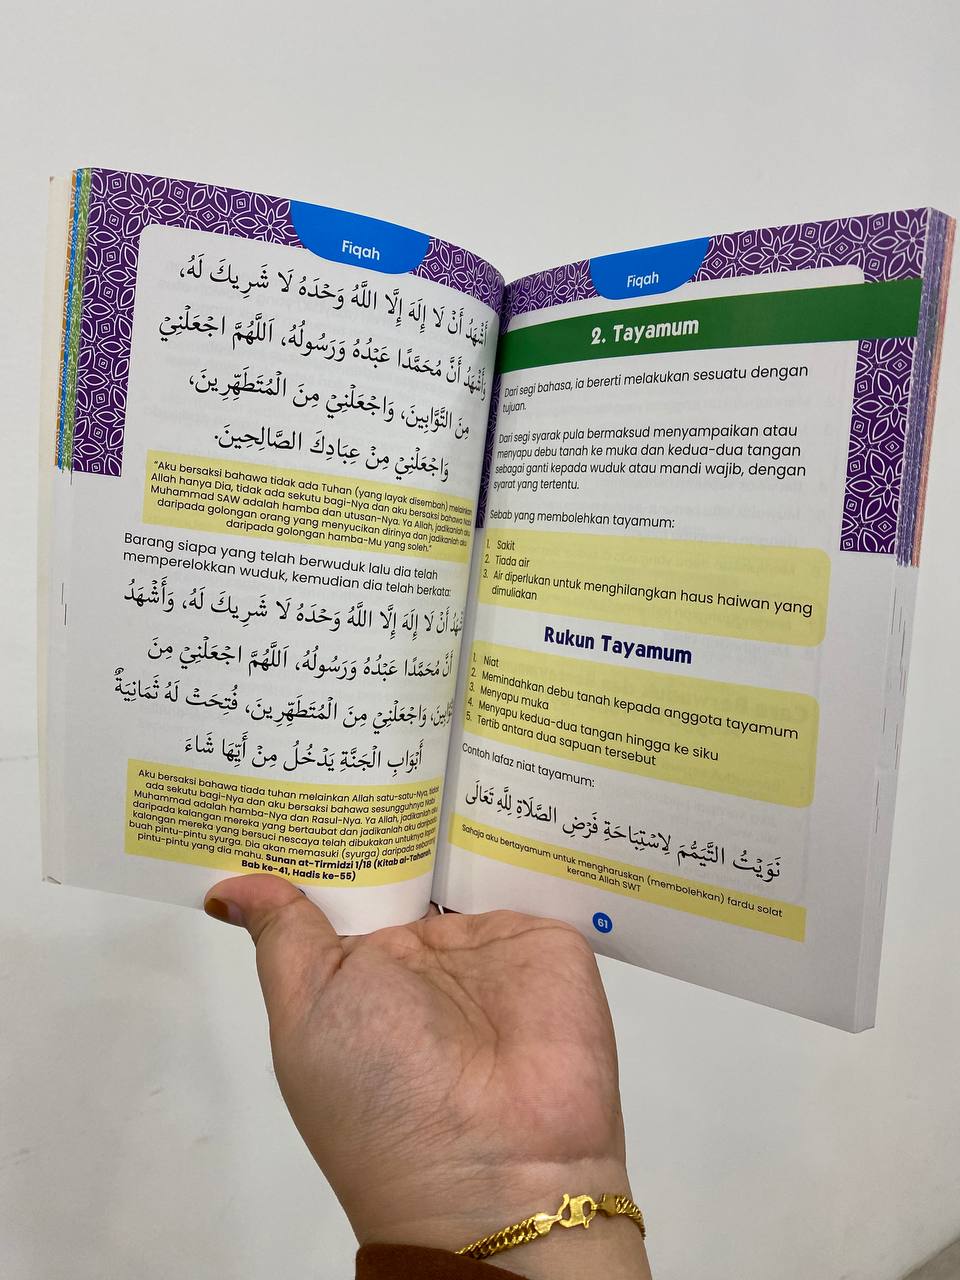 Fiqah
أَشْهَدُ أَنْ لَا إِلَهَ إِلَّا اللَّهُ وَحْدَهُ لَا شَرِيكَ لَهُ،
وَأَشْهَدُ أَنَّ مُحَمَّدًا عَبْدُهُ وَرَسُولُهُ، اَللَّهُمَّ اجْعَلْنِيْ
مِنَ التَّوَّابِينَ، وَاجْعَلْنِيْ مِنَ الْمُتَطَهِّرِينَ،
وَاجْعَلْنِيْ مِنْ عِبَادِكَ الصَّالِحِينَ.
"Aku bersaksi bahawa tidak ada Tuhan (yang layak disembah) melainkan
Allah hanya Dia, tidak ada sekutu bagi-Nya dan aku bersaksi bahawa Nabi
Muhammad SAW adalah hamba dan utusan-Nya. Ya Allah, jadikanlah aku
daripada golongan orang yang menyucikan dirinya dan jadikanlah aku
daripada golongan hamba-Mu yang soleh."
Barang siapa yang telah berwuduk lalu dia telah
memperelokkan wuduk, kemudian dia telah berkata:
أَشْهَدُ أَنْ لَا إِلَهَ إِلَّا اللَّهُ وَحْدَهُ لَا شَرِيكَ لَهُ، وَأَشْهَدُ
أَنَّ مُحَمَّدًا عَبْدُهُ وَرَسُولُهُ، اَللَّهُمَّ اجْعَلْنِيْ مِنَ
التَّوَّابِينَ، وَاجْعَلْنِيْ مِنَ الْمُتَطَهِّرِينَ، فُتِحَتْ لَهُ ثَمَانِيَةُ
أَبْوَابِ الْجَنَّةِ يَدْخُلُ مِنْ أَيِّهَا شَاءَ
Aku bersaksi bahawa tiada tuhan melainkan Allah satu-satu-Nya, tidak
ada sekutu bagi-Nya dan aku bersaksi bahawa sesungguhnya Nabi
Muhammad adalah hamba-Nya dan Rasul-Nya. Ya Allah, jadikanlah aku
daripada kalangan mereka yang bertaubat dan jadikanlah aku daripada
kalangan mereka yang bersuci nescaya telah dibukakan untuknya lapan
buah pintu-pintu syurga. Dia akan memasuki (syurga) daripada seberang
pintu-pintu yang dia mahu. Sunan at-Tirmidzi 1/18 (Kitab al-Taharah,
Bab ke-41, Hadis ke-55)
Fiqah
2. Tayamum
Dari segi bahasa, ia bererti melakukan sesuatu dengan
tujuan.
Dari segi syarak pula bermaksud menyampaikan atau
menyapu debu tanah ke muka dan kedua-dua tangan
sebagai ganti kepada wuduk atau mandi wajib, dengan
syarat yang tertentu.
Sebab yang membolehkan tayamum:
1. Sakit
2. Tiada air
3. Air diperlukan untuk menghilangkan haus haiwan yang
dimuliakan
Rukun Tayamum
1. Niat
2. Memindahkan debu tanah kepada anggota tayamum
3. Menyapu muka
4. Menyapu kedua-dua tangan hingga ke siku
5. Tertib antara dua sapuan tersebut
Contoh lafaz niat tayamum:
نَوَيْتُ التَّيَمُّمَ لِاسْتِبَاحَةِ فَرْضِ الصَّلَاةِ لِلَّهِ تَعَالَى
Sahaja aku bertayamum untuk mengharuskan (membolehkan) fardu solat
kerana Allah SWT
61